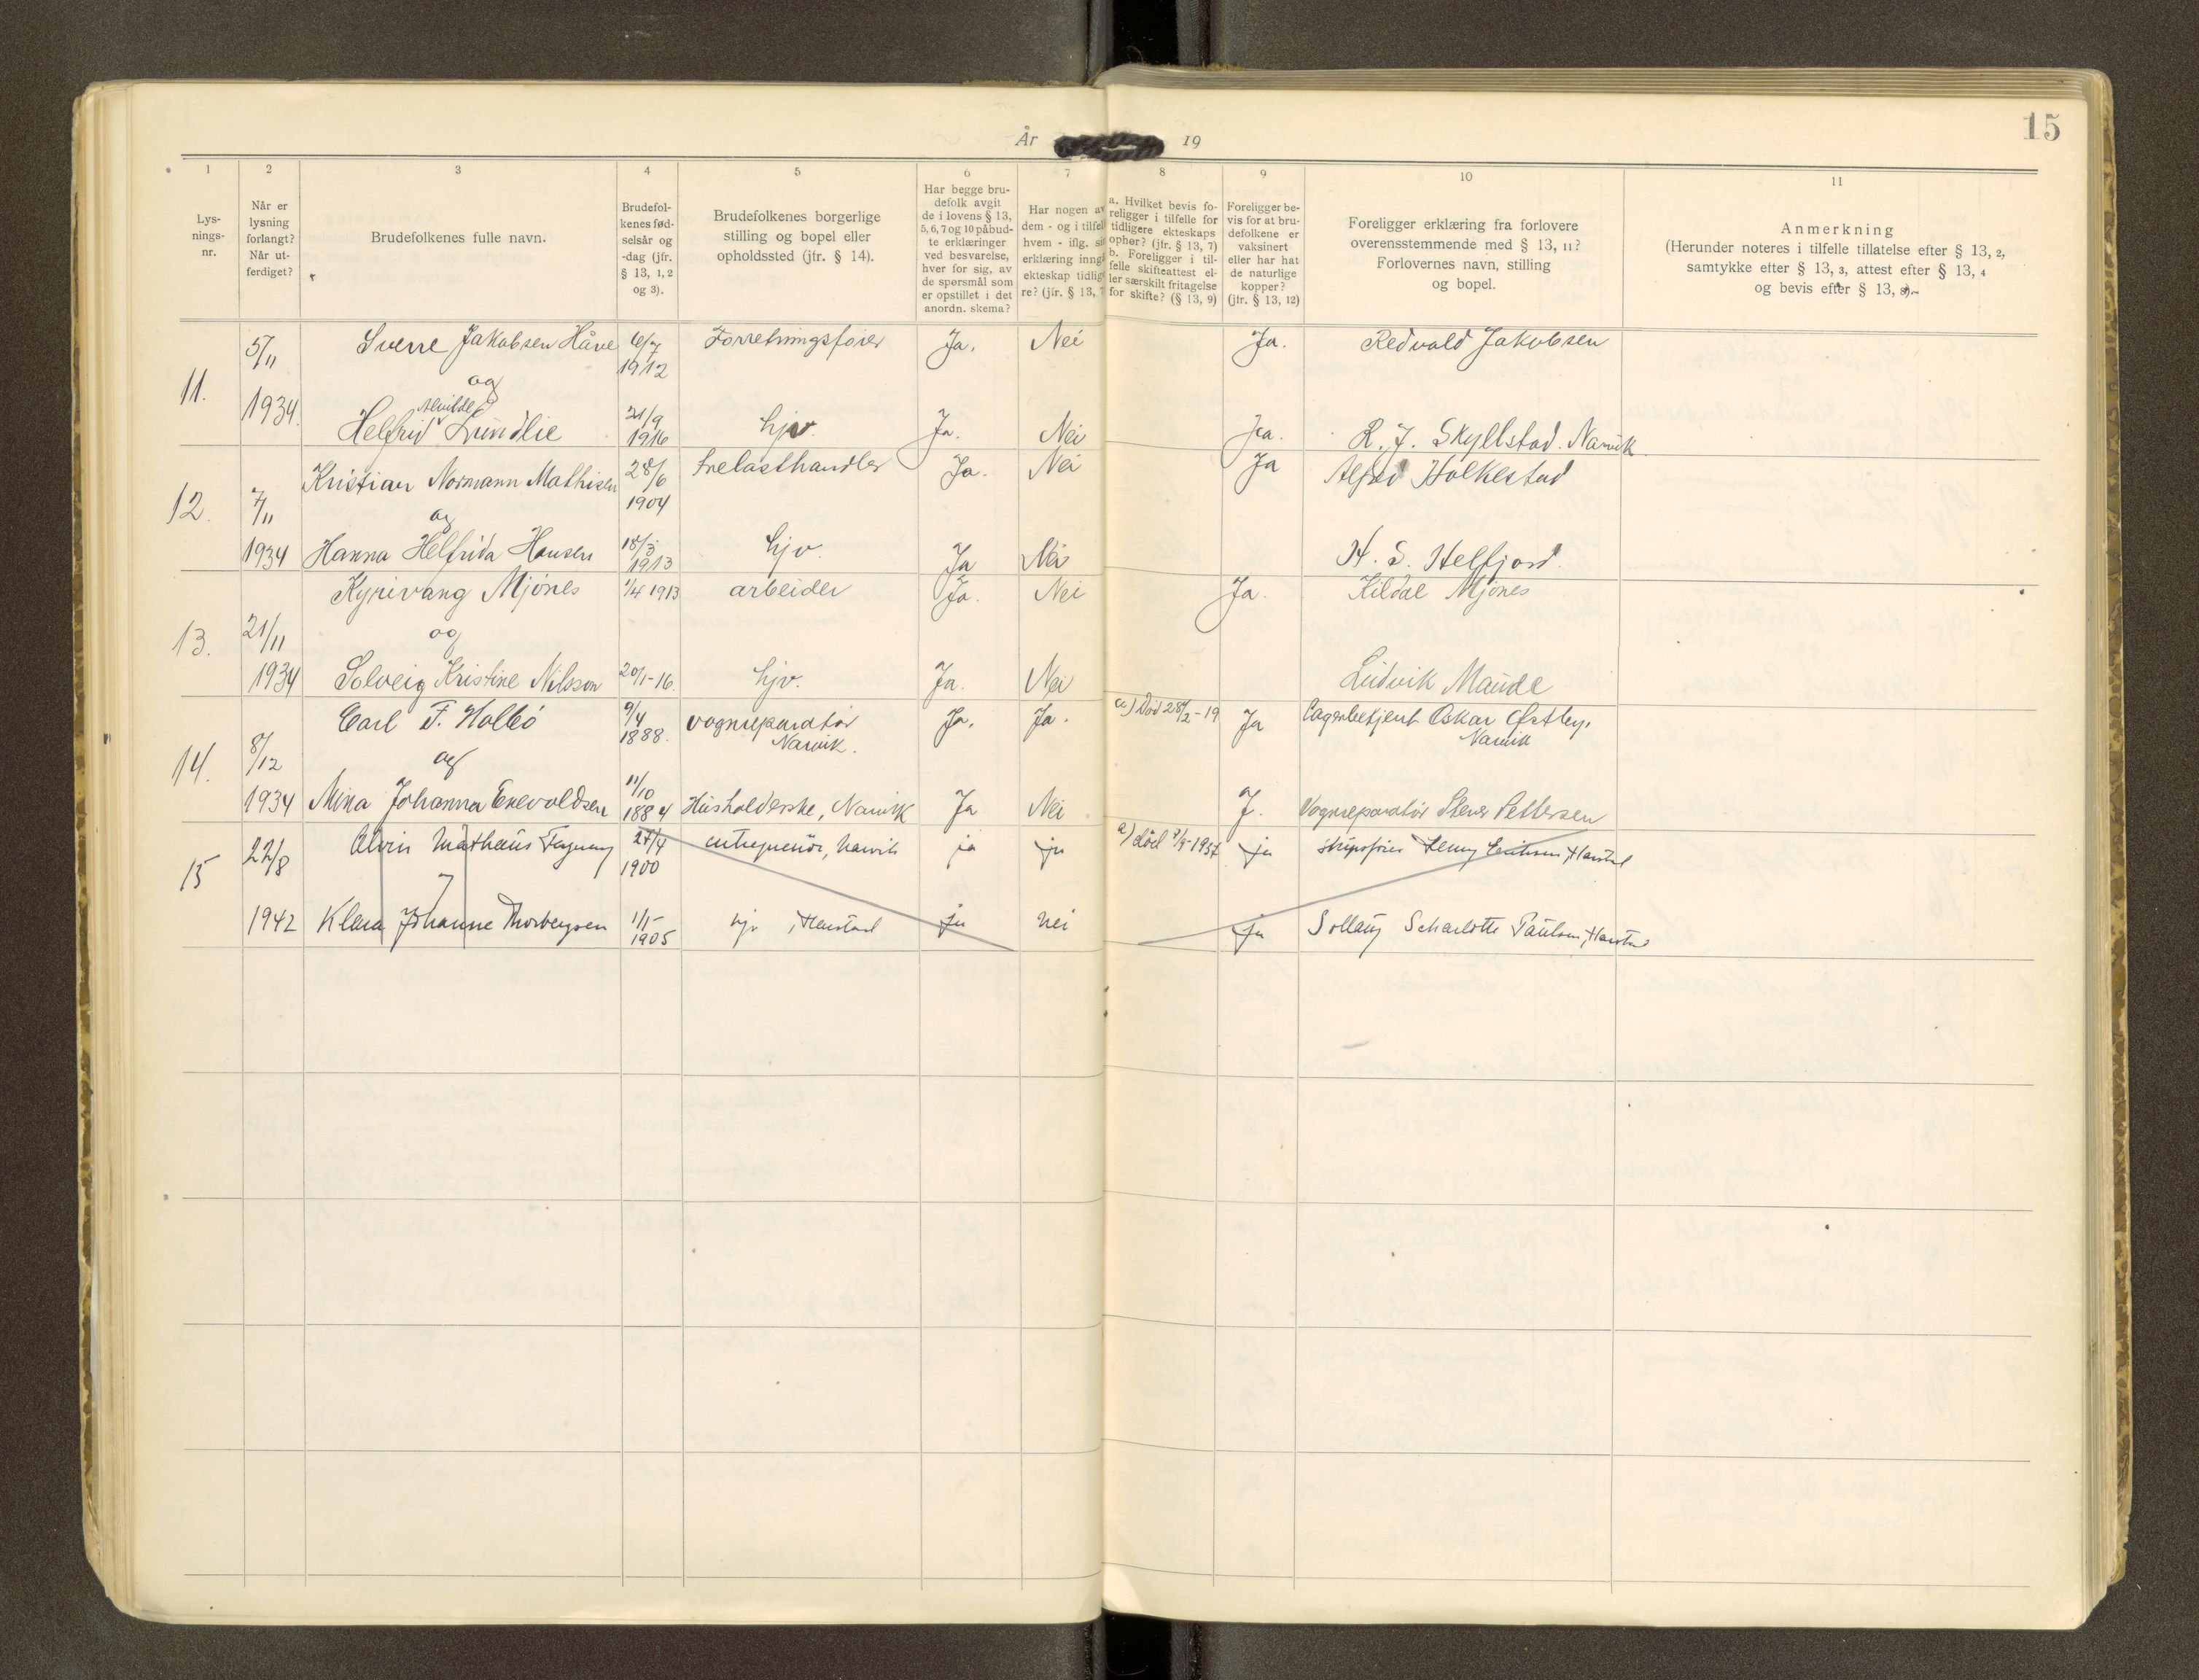 15
År 19
1 2 3 4 5 6 7 8 9 10 11
Lys-
nings-
nr.
Når er
lysning
forlangt?
Når ut-
ferdiget?
Brudefolkenes fulle navn.
Brudefol-
kenes fød-
selsår og
-dag (jfr.
§ 13, 1, 2
og 3).
Brudefolkenes borgerlige
stilling og bopel eller
opholdssted (jfr. § 14).
Har begge bru-
defolk avgit
de i lovens § 13,
5, 6, 7 og 10 påbud-
te erklæringer
ved besvarelse,
hver for sig, av
de spørsmål som
er opstillet i det
anordn. skema?
Har nogen av
dem - og i tilfell
hvem - iflg. sin
erklæring inngå
ekteskap tidlige
re? (jfr. § 13, 7
a. Hvilket bevis fo-
religger i tilfelle for
tidligere ekteskaps
ophør? (jfr. § 13, 7)
b. Foreligger i til-
felle skifteattest el-
ler særskilt fritagelse
for skifte? (§ 13, 9)
Foreligger be-
vis for at bru-
defolkene er
vaksinert
eller har hat
de naturlige
kopper?
(jfr. § 13, 12)
Foreligger erklæring fra forlovere
overensstemmende med § 13, 11?
Forlovernes navn, stilling
og bopel.
Anmerkning
(Herunder noteres i tilfelle tillatelse efter § 13, 2,
samtykke efter § 13, 3, attest efter § 13, 4
og bevis efter § 13, 8).
11. 5/11 1934.
Sverre Jakobsen Håve 6/7 1912 Forretningsfører Ja. Nei Ja. Redvald Jakobsen
og
Alvilde
Helfrid Lundlie 21/9 1916 hjv. Ja. Nei Ja. R. J. Skyllstad. Narvik
12. 7/11 1934
Kristian Normann Mathisen 28/6 1904 trelasthandler Ja. Nei Ja Alfred Holkestad
og
Hanna Helfrida Hansen 18/3 1913 hjv. Ja Nei H. S. Helfjord.
13. 21/11 1934
Kyrivang Mjönes 1/4 1913 arbeider Ja. Nei Ja. Kildal Mjönes
og
Solveig Kristine Nilsson 20/1-16. hjv. Ja. Nei Ludvik Maude
14. 8/12 1934
Carl F. Holbö 9/4 1888. vognreparatør Narvik. Ja. Ja. a) Död 28/2-19 Ja Lagerbetjent Oskar Østby, Narvik
og
Mina Johanna Enevoldsen 11/10 1884 Husholderske, Narvik Ja Nei J. Vognreparatør Stener Pettersen
15 22/8 1942
Alvin Mathäus 27/4 1900 entreprenör, Narvik ja ja a) död ja Jenny Eriksen, Harstad
Klara Johanne Thorbergsen 1/5 1905 hjv, Harstad ja nei ja Sollaug Scharlotte Paulsen, Harstad